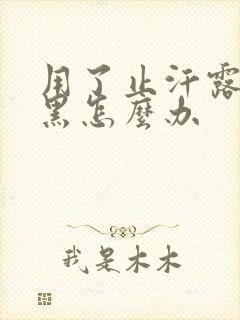 用了止汗露
黑怎麼办
我是木木